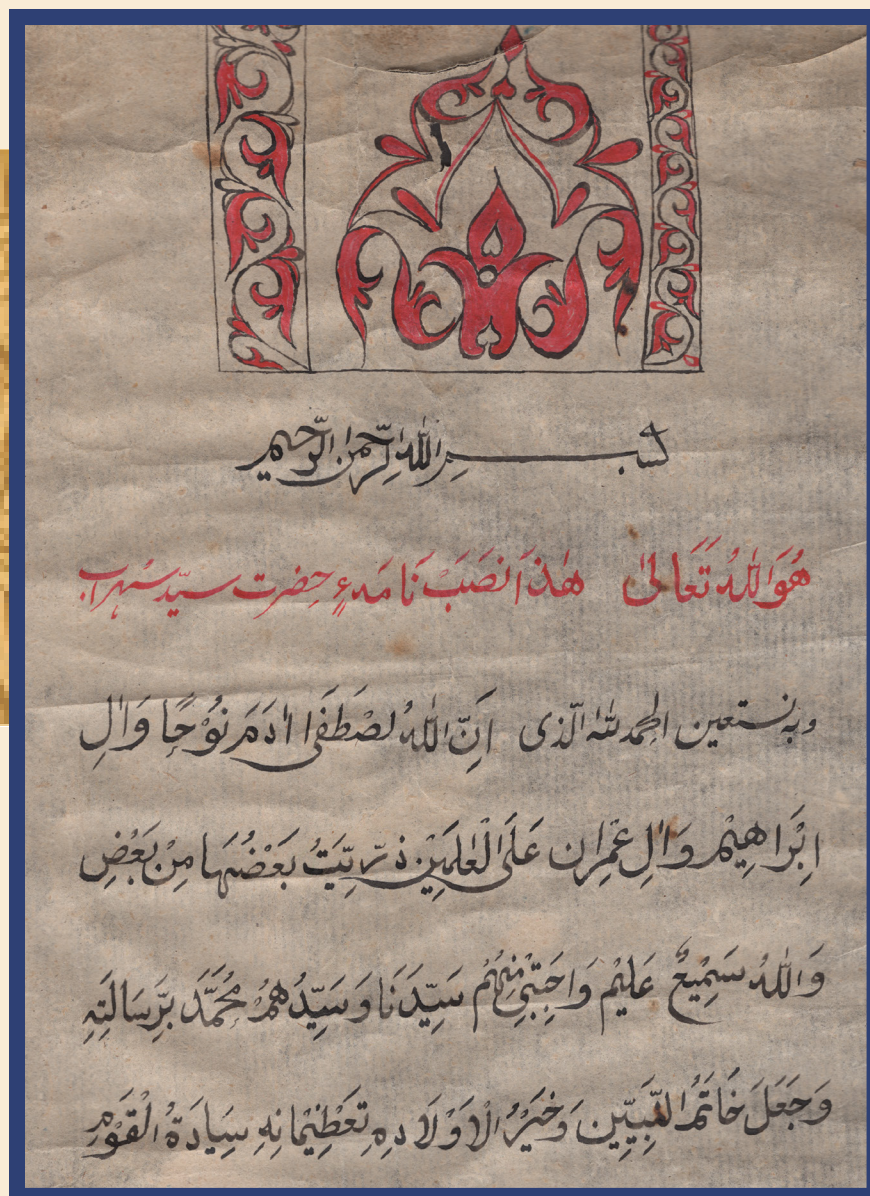 بسم الله الرحمن الرحيم
هُوَاللهُ تَعَالىٰ هٰذَا نَصَبْ نَامَهءِ حضرت سیّد سُہراب
وبه نستعين الحمد لله الّذی اِنَّ اللهُ لصْطَفَی اٰدَمَ نُوْحًا وَاٰلِ
اِبْرَاهِیْم وَاٰلِ عِمْرَان عَلَی الْعٰلَمِیْن ذرّیّتُ بَعْضُهَا مِنْ بَعْضِ
وَاللهُ سَمِیْعٌ عَلیْم وَاجْتَبٰی مِنْهُمْ سَیِّدَنَا وَسَیِّدُهُمْ مُحَمَّدَ بِرَسَالَتِهِ
وَجَعَلَ خَاتَمُ النَّبِیِّین وَخَیْرُ الْاَوْلَادِهِ تَعَظِیْمَانِهِ سِیَادَةُ الْقَوْمِ